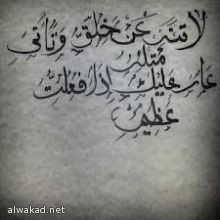 لا تنه عن خلق وتأتي
مثله
عار عليك إذا فعلت
عظيم
alwakad.net